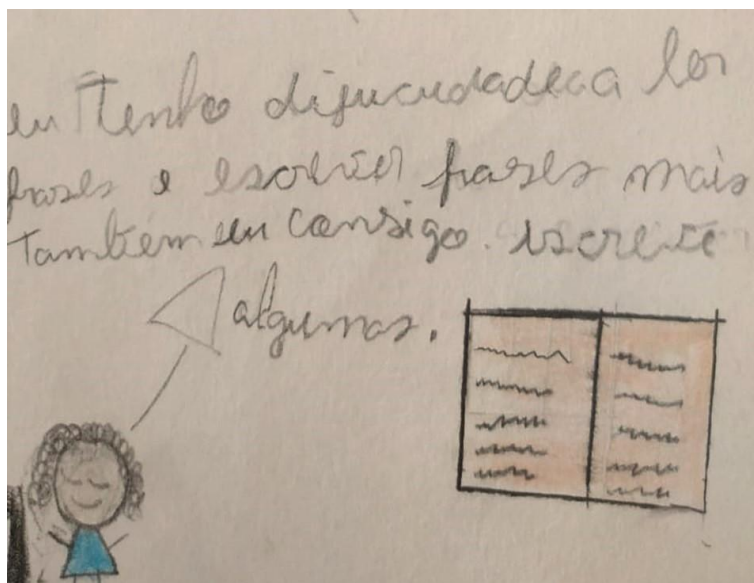 eu tenho dificudadeca a ler
frases e escrever frases mais
também eu consigo. iscreve
algumas.